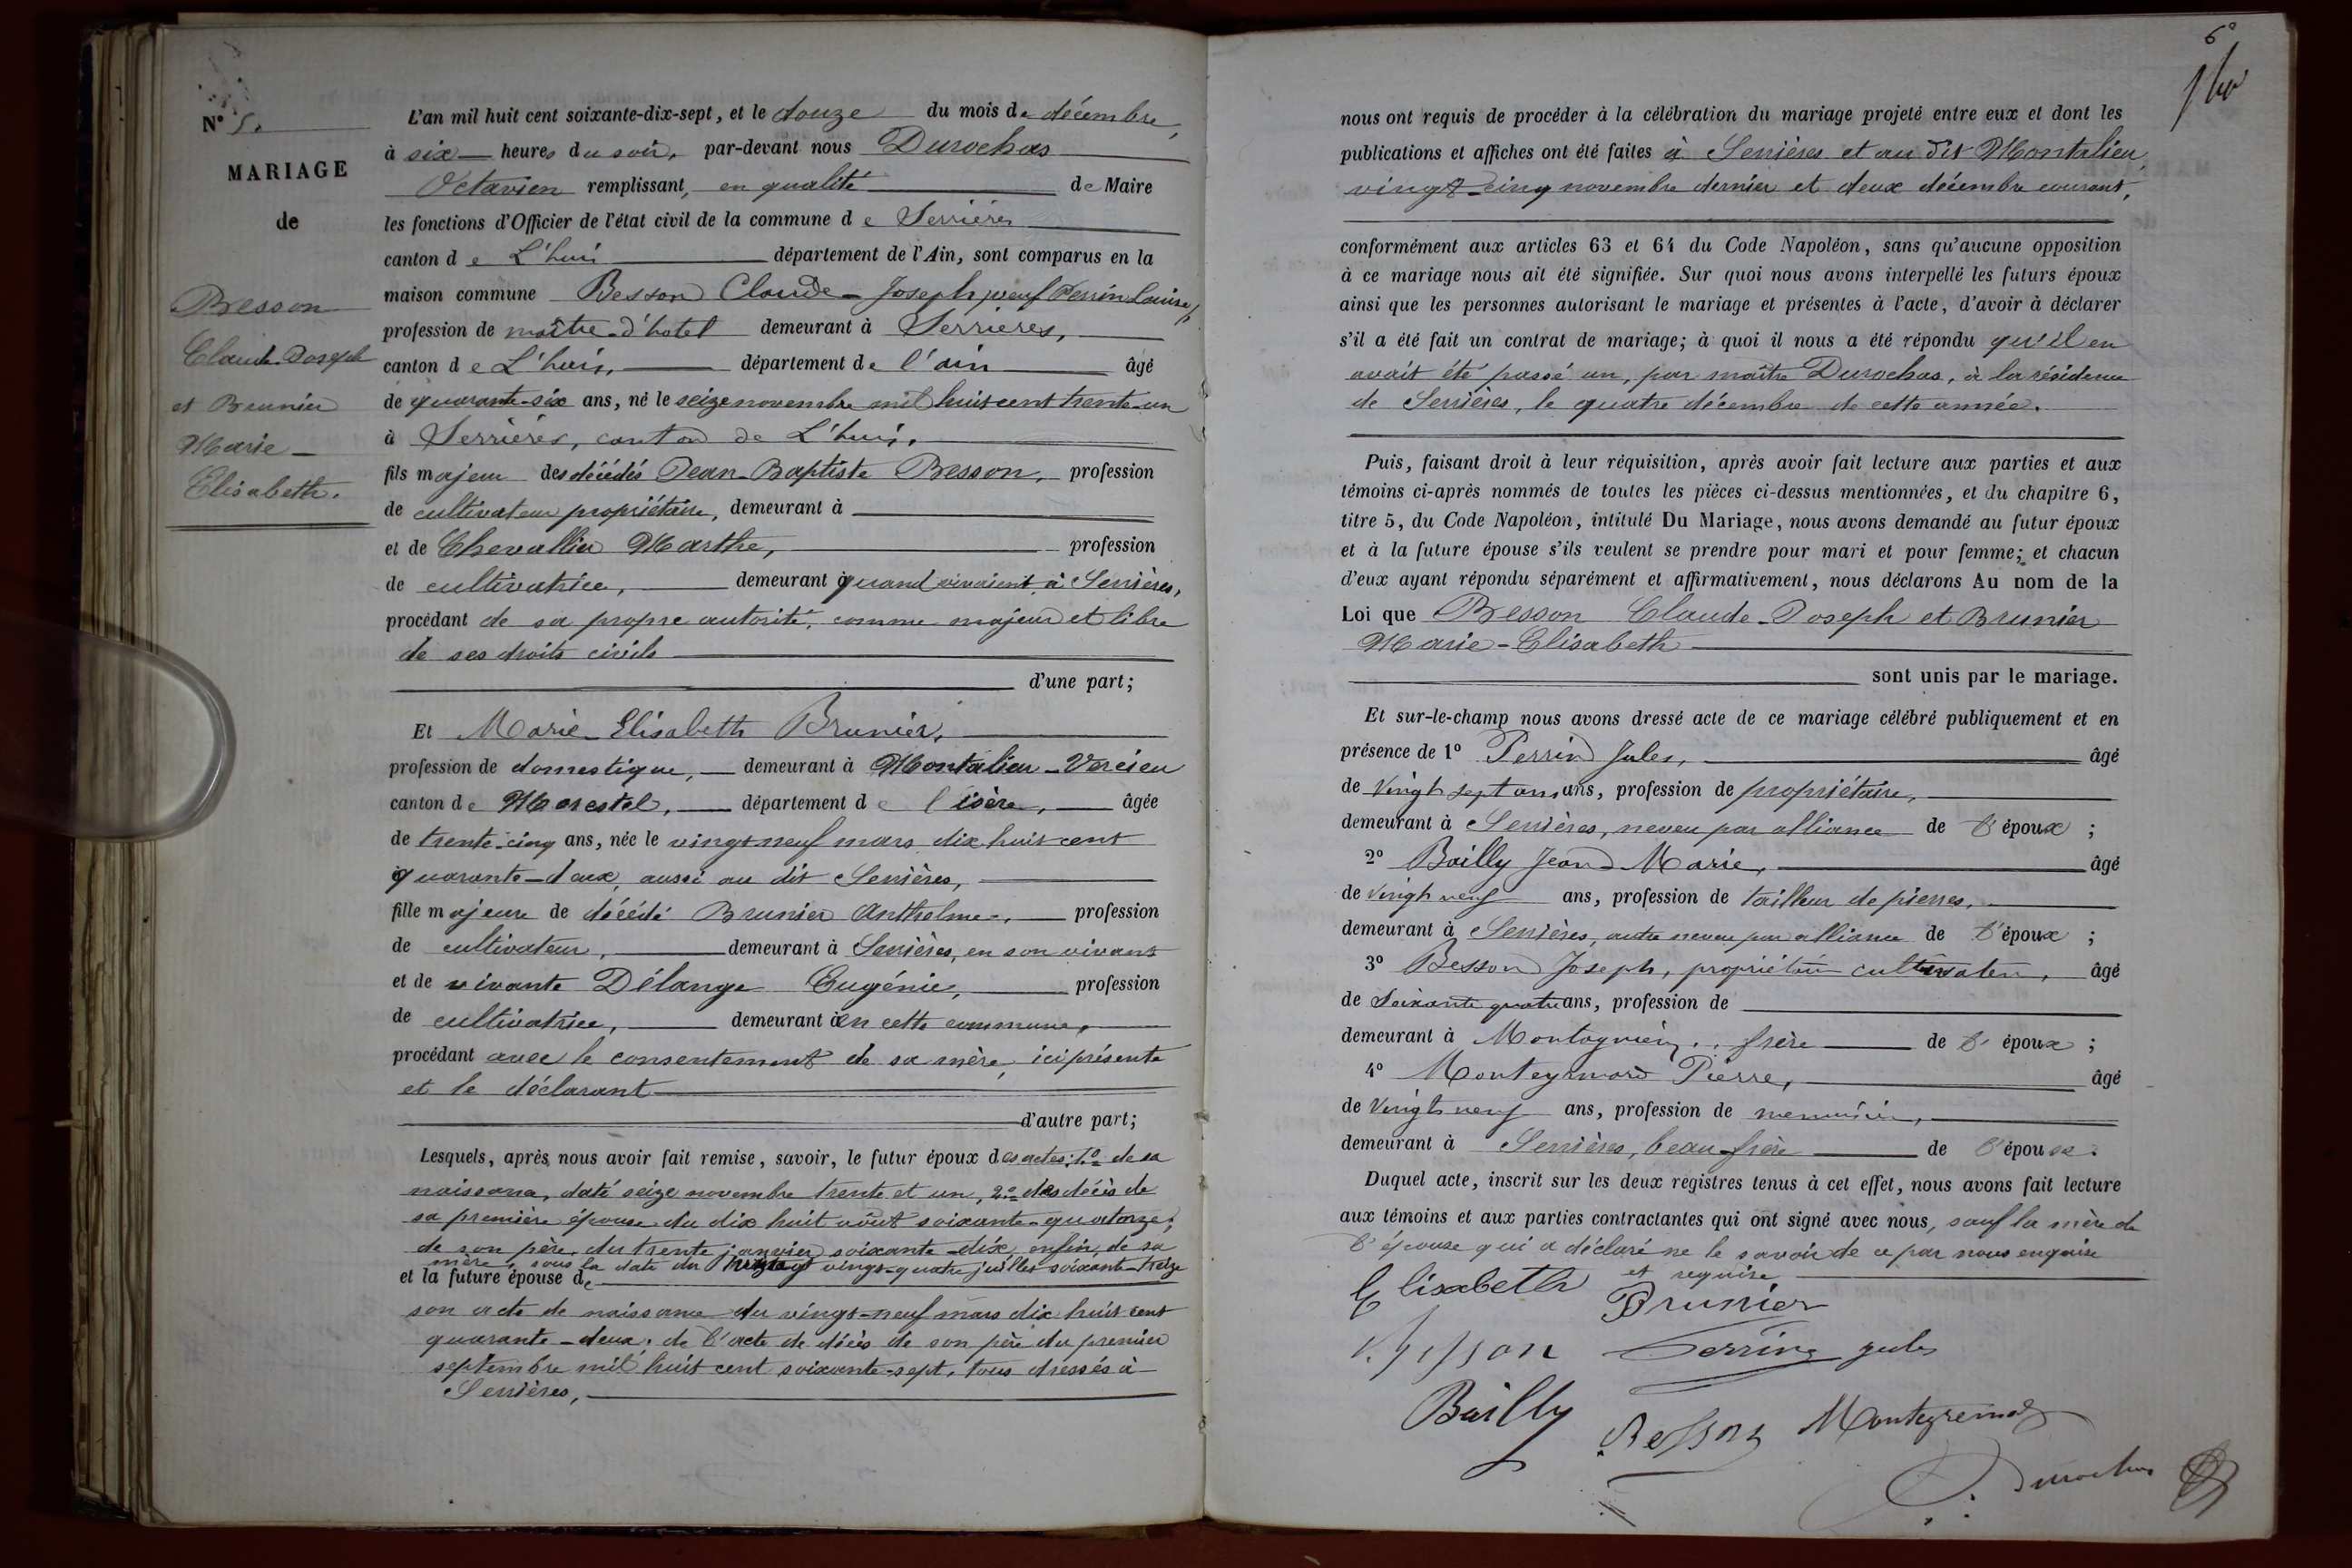 N° 5.
MARIAGE
de
Besson
Claude-Joseph
et Brunier
Marie-
Elisabeth.
L'an mil huit cent soixante-dix-sept, et le douze du mois de décembre,
à six heures du soir, par-devant nous Durochas
Octavien remplissant, en qualité de Maire
les fonctions d'Officier de l'état civil de la commune de Serrières
canton de L'huis département de l'Ain, sont comparus en la
maison commune Besson Claude-Joseph veuf Perrin Louise,
profession de maître-d'hotel demeurant à Serrières,
canton de L'huis, département de l'ain âgé
de quarante-six ans, né le seize novembre mil huit cent trente-un
à Serrières, canton de L'huis,
fils majeur des décédés Jean-Baptiste Besson, profession
de cultivateur propriétaire, demeurant à
et de Chevallier Marthe, profession
de cultivatrice, demeurant à quand vivaient, à Serrières,
procédant de sa propre autorité, comme majeur et libre
de ses droits civils
d'une part;
Et Marie-Elisabeth Brunier,
profession de domestique, demeurant à Montalieu-Vercieu
canton de Morestel, département de l'isère, âgée
de trente-cinq ans, née le vingt-neuf mars dix huit cent
quarante-deux, aussi au dit Serrières,
fille majeure de décédé Brunier Anthelme, profession
de cultivateur, demeurant à Serrières, en son vivant
et de vivante Délange Eugénie, profession
de cultivatrice, demeurant à en cette commune,
procédant avec le consentement de sa mère, ici présente
et le déclarant
d'autre part;
Lesquels, après nous avoir fait remise, savoir, le futur époux des actes: 1.° de sa
naissance, daté seize novembre trente et un, 2.° des décès de
sa première épouse du dix huit août soixante-quatorze;
de son père, du trente janvier soixante-dix, enfin, de sa
mère, sous la date du vingt-quatre juillet soixante-treize
et la future épouse de
son acte de naissance du vingt-neuf mars dix huit cent
quarante-deux; de l'acte de décès de son père du premier
septembre mil huit cent soixante-sept, tous dressés à
Serrières,
6°
nous ont requis de procéder à la célébration du mariage projeté entre eux et dont les
publications et affiches ont été faites à Serrières et au dit Montalieu,
vingt-cinq novembre dernier et deux décembre courant,
conformément aux articles 63 et 64 du Code Napoléon, sans qu'aucune opposition
à ce mariage nous ait été signifiée. Sur quoi nous avons interpellé les futurs époux
ainsi que les personnes autorisant le mariage et présentes à l'acte, d'avoir à déclarer
s'il a été fait un contrat de mariage; à quoi il nous a été répondu qu'il en
avait été passé un, par maître Durochas, à la résidence
de Serrières, le quatre décembre de cette année.
Puis, faisant droit à leur réquisition, après avoir fait lecture aux parties et aux
témoins ci-après nommés de toutes les pièces ci-dessus mentionnées, et du chapitre 6,
titre 5, du Code Napoléon, intitulé Du Mariage, nous avons demandé au futur époux
et à la future épouse s'ils veulent se prendre pour mari et pour femme; et chacun
d'eux ayant répondu séparément et affirmativement, nous déclarons Au nom de la
Loi que Besson Claude-Joseph et Brunier
Marie-Elisabeth
sont unis par le mariage.
Et sur-le-champ nous avons dressé acte de ce mariage célébré publiquement et en
présence de 1° Perrin Jules, âgé
de Vingt sept ans, ans, profession de propriétaire,
demeurant à Serrières, neveu par alliance de l'époux ;
2° Bailly Jean-Marie, âgé
de vingt neuf ans, profession de tailleur de pierres,
demeurant à Serrières, autre neveu par alliance de l'époux ;
3° Besson Joseph, propriétaire cultivateur, âgé
de Soixante quatre ans, profession de
demeurant à Montagnieu, frère de l'époux ;
4° Monteymard Pierre, âgé
de Vingt neuf ans, profession de menuisier,
demeurant à Serrières, beau-frère de l'épouse.
Duquel acte, inscrit sur les deux registres tenus à cet effet, nous avons fait lecture
aux témoins et aux parties contractantes qui ont signé avec nous, sauf la mère de
l'épouse qui a déclaré ne le savoir de ce par nous enquise
et requise
Elisabeth Brunier
Besson Perrin jules
Bailly Besson Monteyremard
Durochas